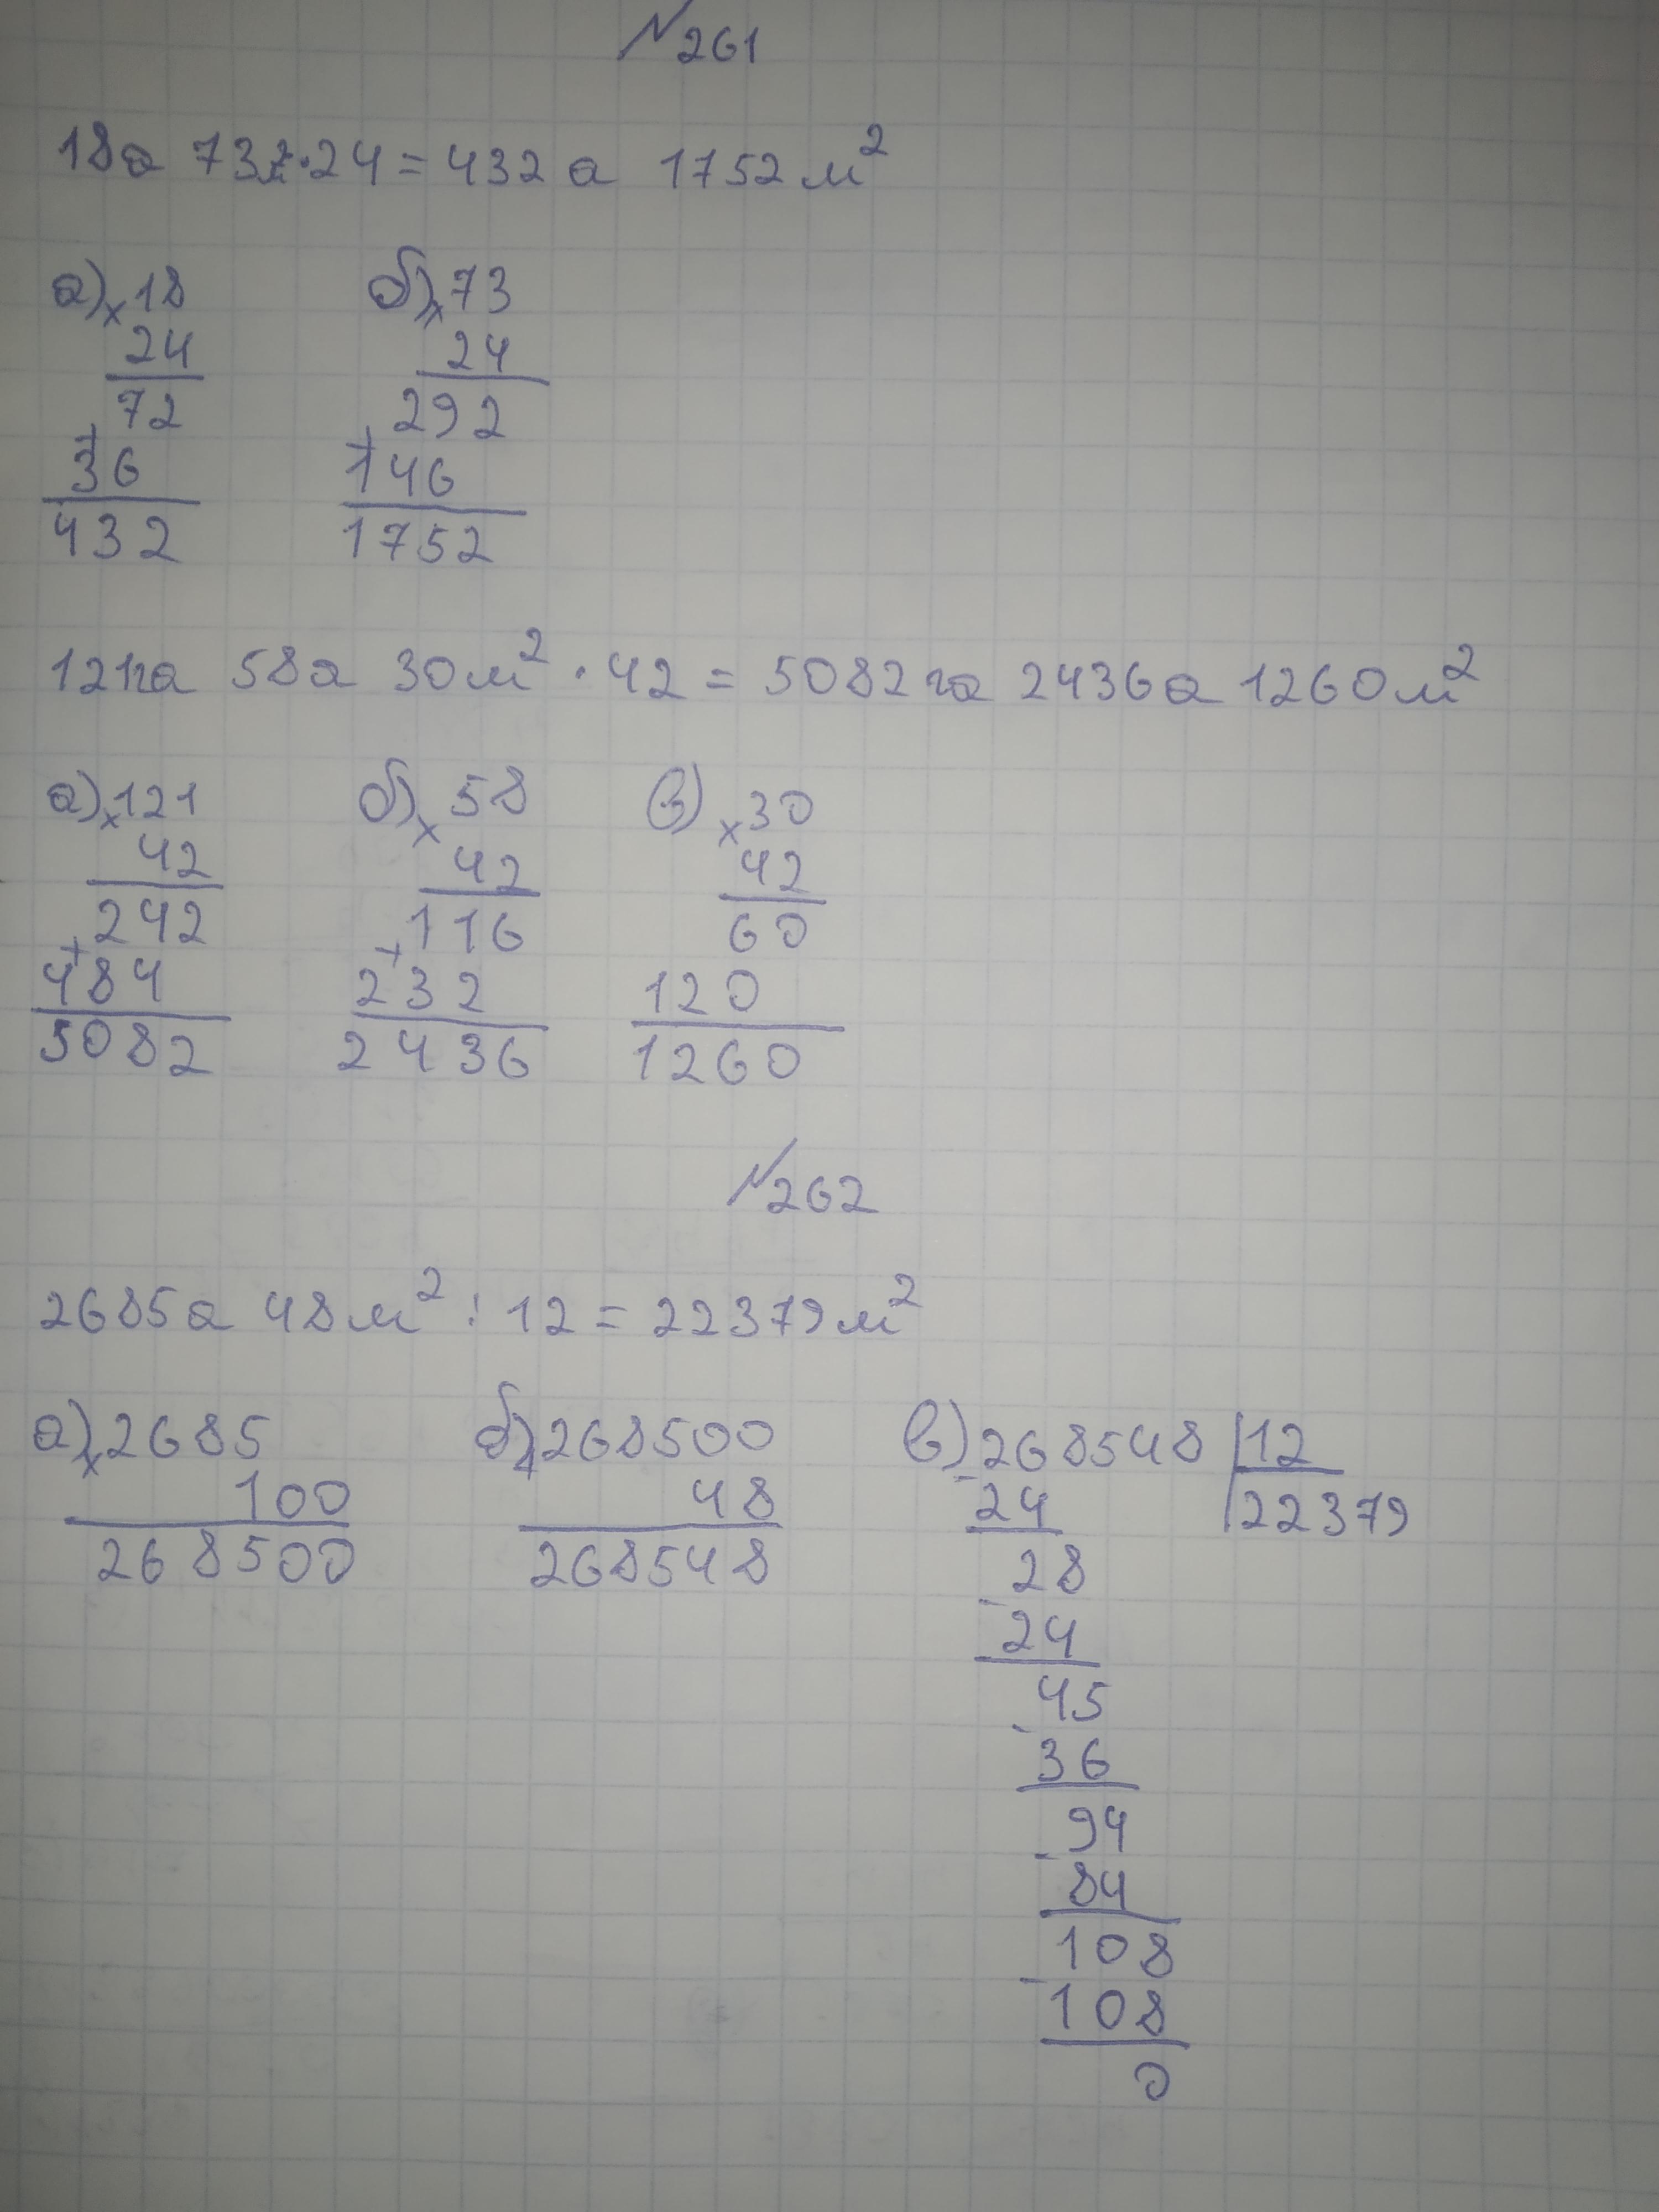 №261
18а 73 · 24 = 432 а 1752 м²
а) × 18 б) × 73
24 24
72 292
+ 36 + 146
432 1752
121га 58а 30м² · 42 = 5082 га 2436а 1260м²
а) × 121 б) × 58 в) × 30
42 42 42
242 116 60
+ 484 + 232 120
5082 2436 1260
№262
2685а 48м² : 12 = 22379м²
а) × 2685 б) + 268500 в) 268548 | 12
100 48 - 24 22379
268500 268548 28
- 24
45
- 36
94
- 84
108
- 108
0